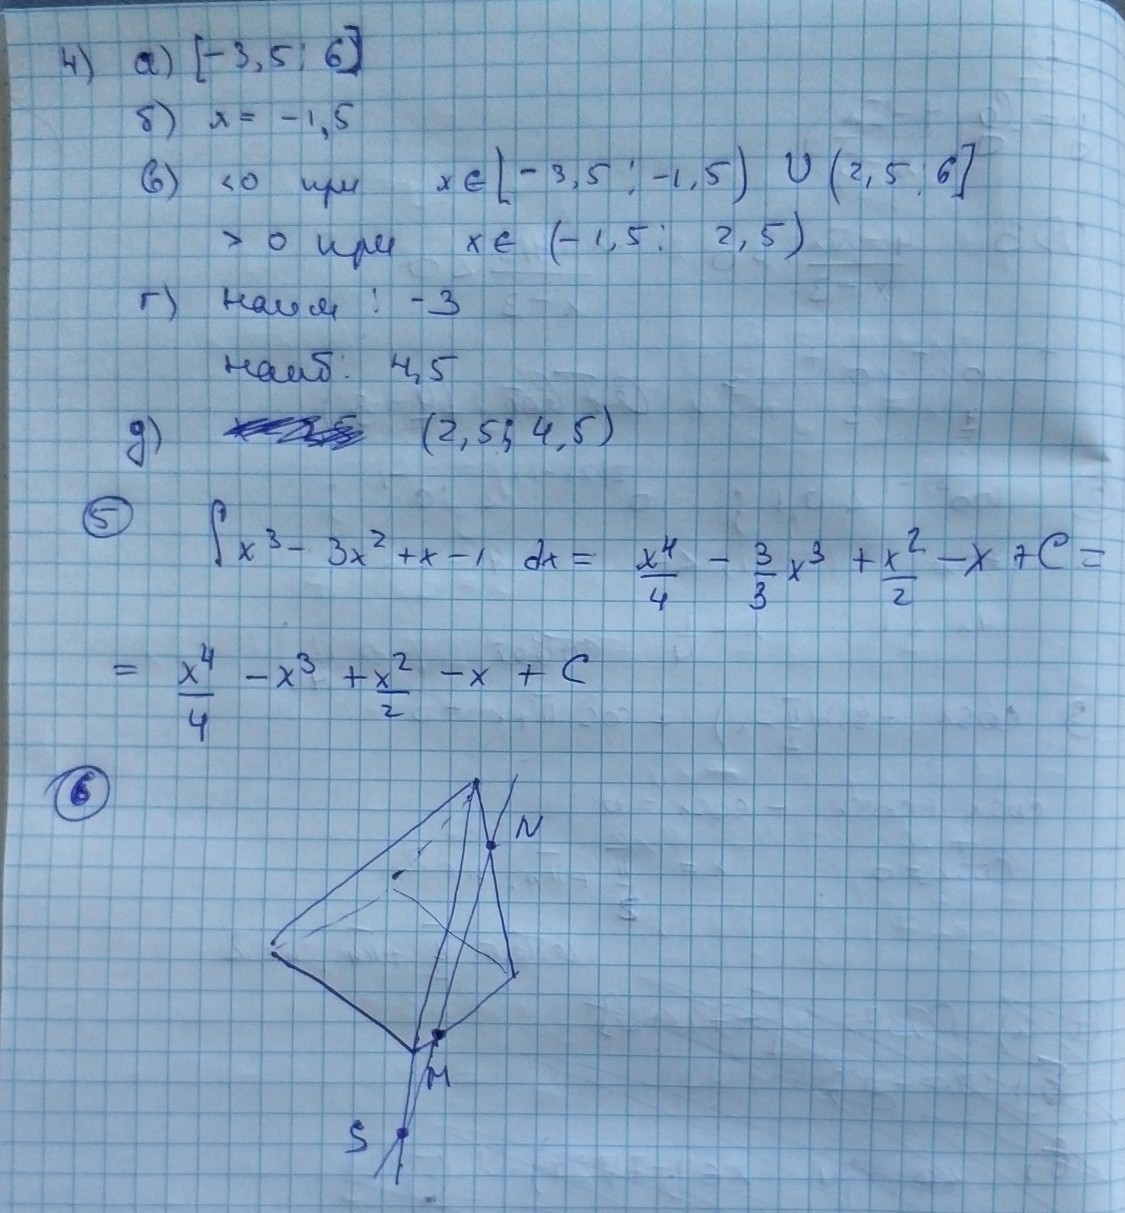 4) а) [-3,5; 6]
б) x = -1,5
в) <0 при x∈[-3,5; -1,5) ∪ (2,5; 6]
>0 при x∈ (-1,5; 2,5)
г) наим: -3
наиб: 4,5
д) (2,5; 4,5)
5 ∫x³ - 3x² + x - 1 dx = x⁴/4 - 3/3 x³ + x²/2 - x + C =
= x⁴/4 - x³ + x²/2 - x + C
6
N
M
S